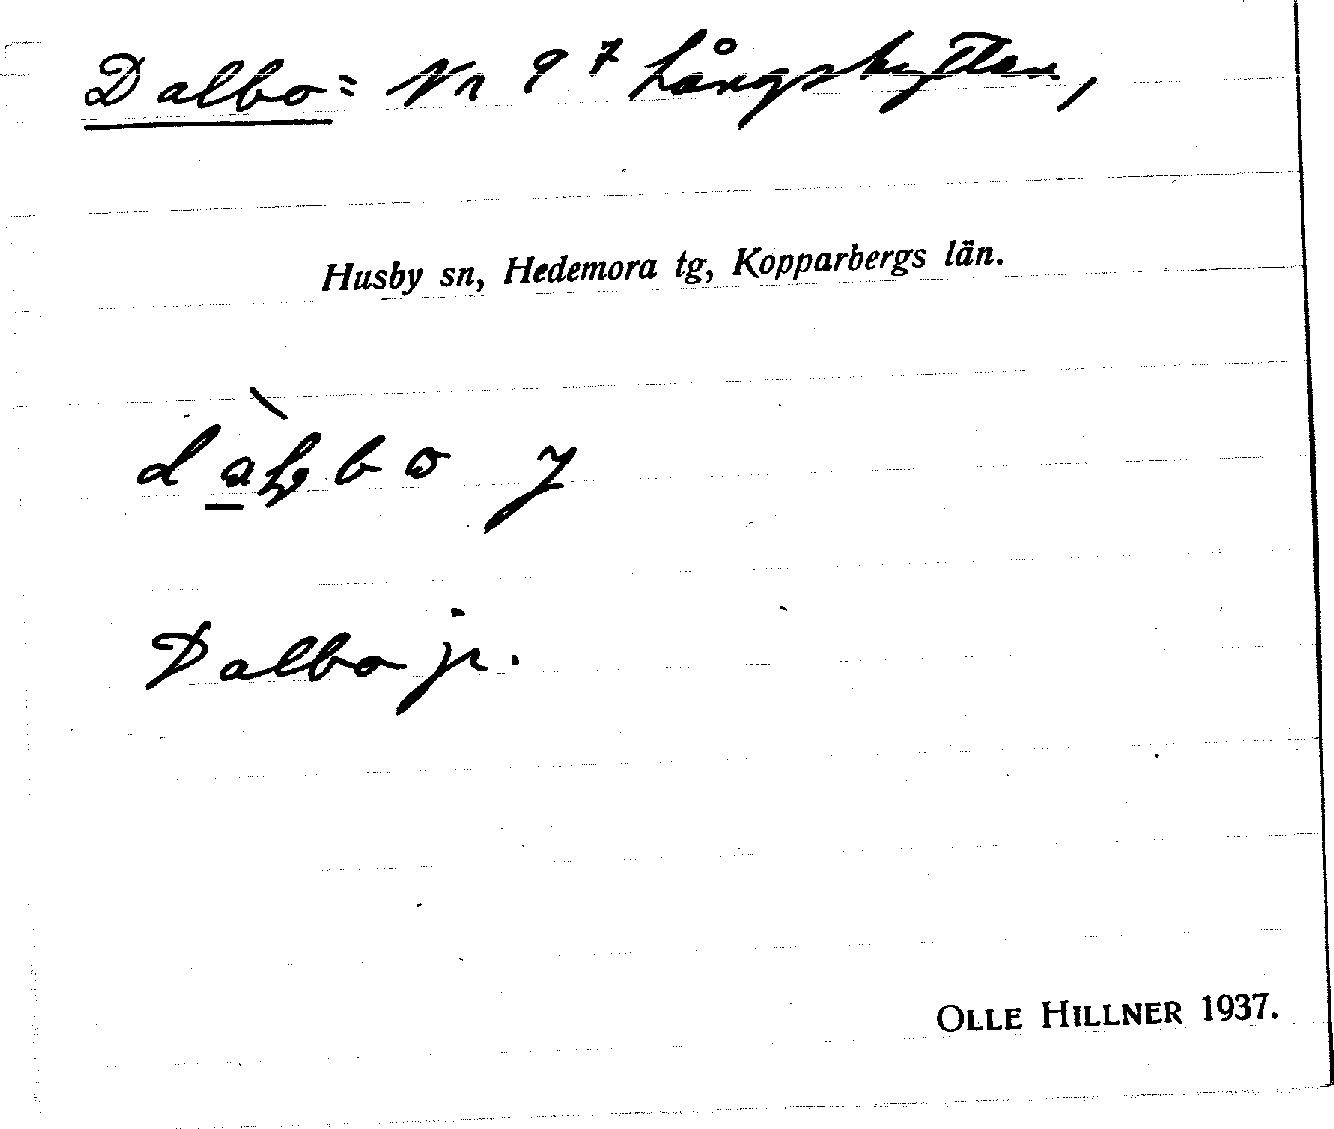 Dalbo = Nr 9⁷ Långshyttan,
Husby sn, Hedemora tg, Kopparbergs län.
Dalbo jr.
OLLE HILLNER 1937.